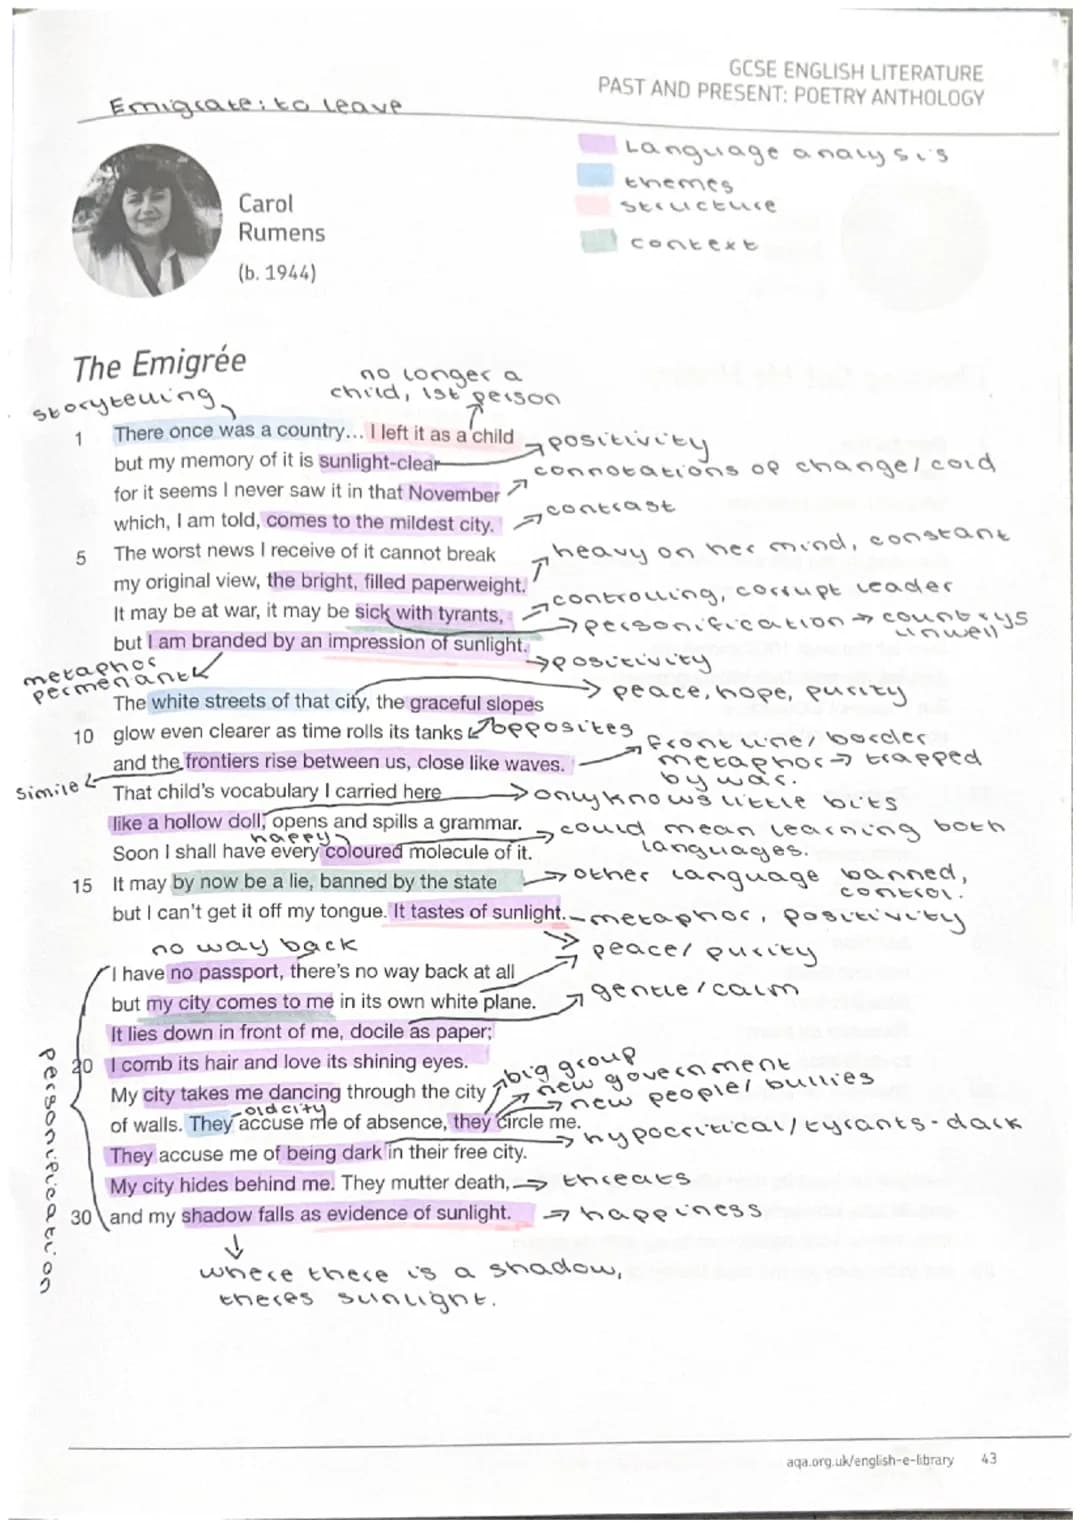 GCSE ENGLISH LITERATURE
PAST AND PRESENT: POETRY ANTHOLOGY
Emigrate: to leave
Language analysis
themes
structure
context
Carol
Rumens
(b. 1944)
The Emigrée
no longer a
child, 1st person
storytelling
1 There once was a country... I left it as a child
positivity
but my memory of it is sunlight-clear
connotations of change/cold
for it seems I never saw it in that November
which, I am told, comes to the mildest city.
contrast
5 The worst news I receive of it cannot break
heavy on her mind, constant
my original view, the bright, filled paperweight.
It may be at war, it may be sick with tyrants,
controlling, corrupt leader
personification → countrys
unwell
but I am branded by an impression of sunlight.
positivity
metaphor
permenant
The white streets of that city, the graceful slopes
peace, hope, purity
10 glow even clearer as time rolls its tanks
opposites
and the frontiers rise between us, close like waves.
front line/border
metaphor → trapped
by war.
simile
That child's vocabulary I carried here
only knows little bits
like a hollow doll, opens and spills a grammar.
could mean learning both
languages.
happy
Soon I shall have every coloured molecule of it.
15 It may by now be a lie, banned by the state
other language banned,
control.
but I can't get it off my tongue. It tastes of sunlight.
metaphor, positivity
no way back
peace/purity
I have no passport, there's no way back at all
but my city comes to me in its own white plane.
gentle/calm
It lies down in front of me, docile as paper;
20 I comb its hair and love its shining eyes.
big group
new government
new people/bullies
My city takes me dancing through the city
old city
of walls. They accuse me of absence, they circle me.
hypocritical/tyrants-dark
They accuse me of being dark in their free city.
My city hides behind me. They mutter death,
threats
30 and my shadow falls as evidence of sunlight.
happiness
personification
where there is a shadow,
theres sunlight.
aqa.org.uk/english-e-library 43